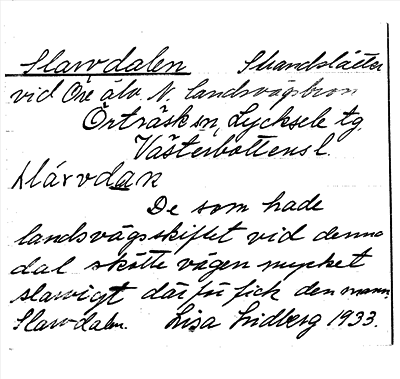 Slarvdalen Strandslåtter
vid Öre älv N. landsvägsbron
Örträsk sn, Lycksele tg.
Västerbottens l.
slárvdan
De som hade
landsvägsskiftet vid denna
dal skötte vägen mycket
slarvigt därför fick den namn.
Slarvdalen. Lisa Lidberg 1933.